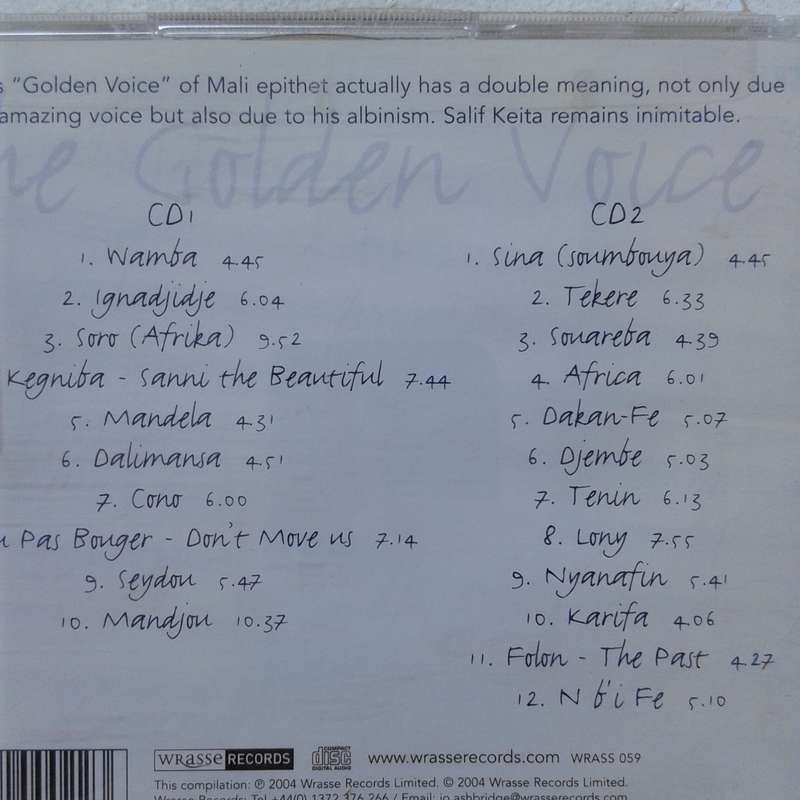 "Golden Voice" of Mali epithet actually has a double meaning, not only due
amazing voice but also due to his albinism. Salif Keita remains inimitable.
Golden Voice
CD1
1. Wamba 4.45
2. Ignadjidje 6.04
3. Soro (Afrika) 9.52
Kegniba - Sanni the Beautiful 7.44
5. Mandela 4.31
6. Dalimansa 4.51
7. Cono 6.00
Pas Bouger - Don't Move us 7.14
9. Seydou 5.47
10. Mandjou 10.37
CD2
1. Sina (Soumbouya) 4.45
2. Tekere 6.33
3. Souareba 4.39
4. Africa 6.01
5. Dakan-Fe 5.07
6. Djembe 5.03
7. Tenin 6.13
8. Lony 7.55
9. Nyanafin 5.41
10. Karifa 4.06
11. Folon - The Past 4.27
12. N b'i Fe 5.10
wrasse RECORDS COMPACT disc DIGITAL AUDIO www.wrasserecords.com WRASS 059
This compilation: ℗ 2004 Wrasse Records Limited. © 2004 Wrasse Records Limited.
Wrasse Records: Tel +44(0) 1372 376 266 / Email: jo.ashbridge@wrasserecords.com